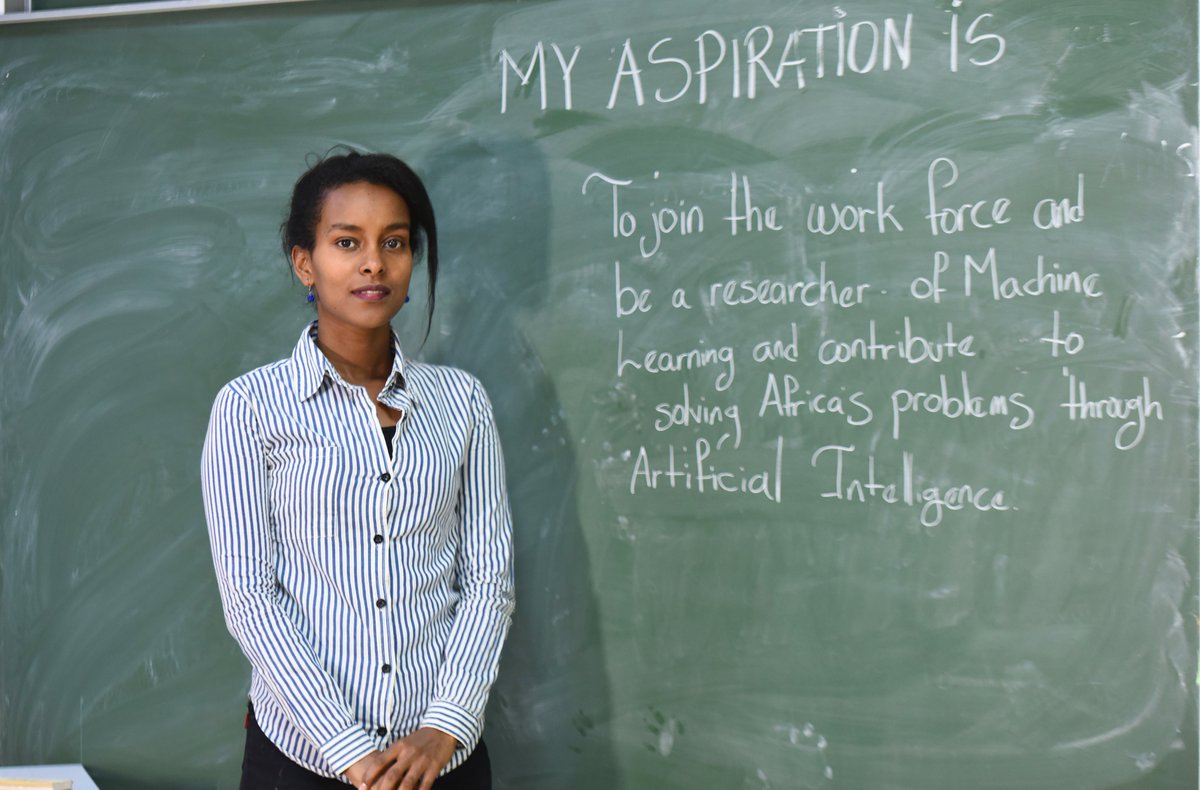 MY ASPIRATION IS
To join the work force and
be a researcher of Machine
Learning and contribute to
solving Africa's problems through
Artificial Intelligence.